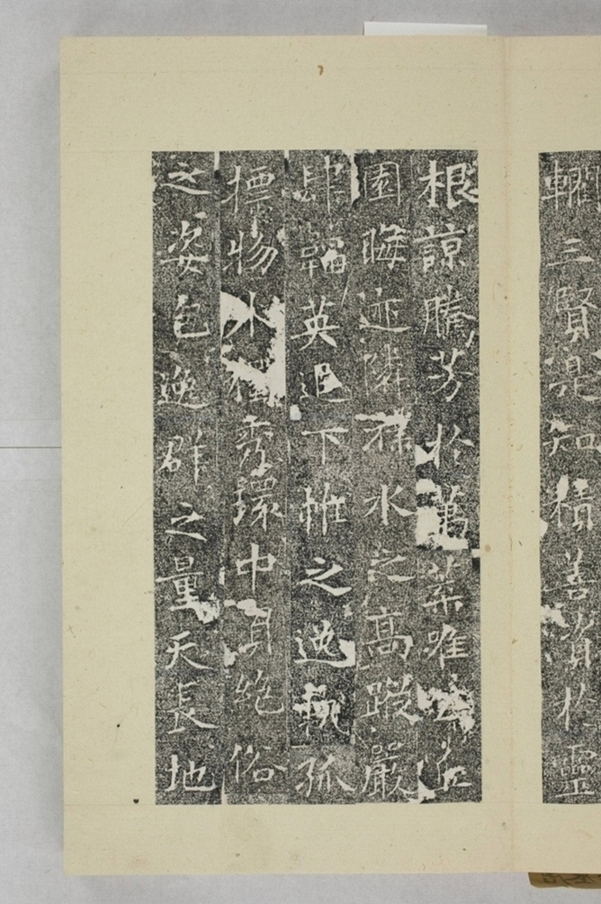 三賢是知積善資於靈
根諒騰芳於萬葉唯公丘
園晦迹隣水之高嚴
肆韞英追下帷之逸軌孤
摽物秀環中負絕俗
之姿包逸群之量天長地